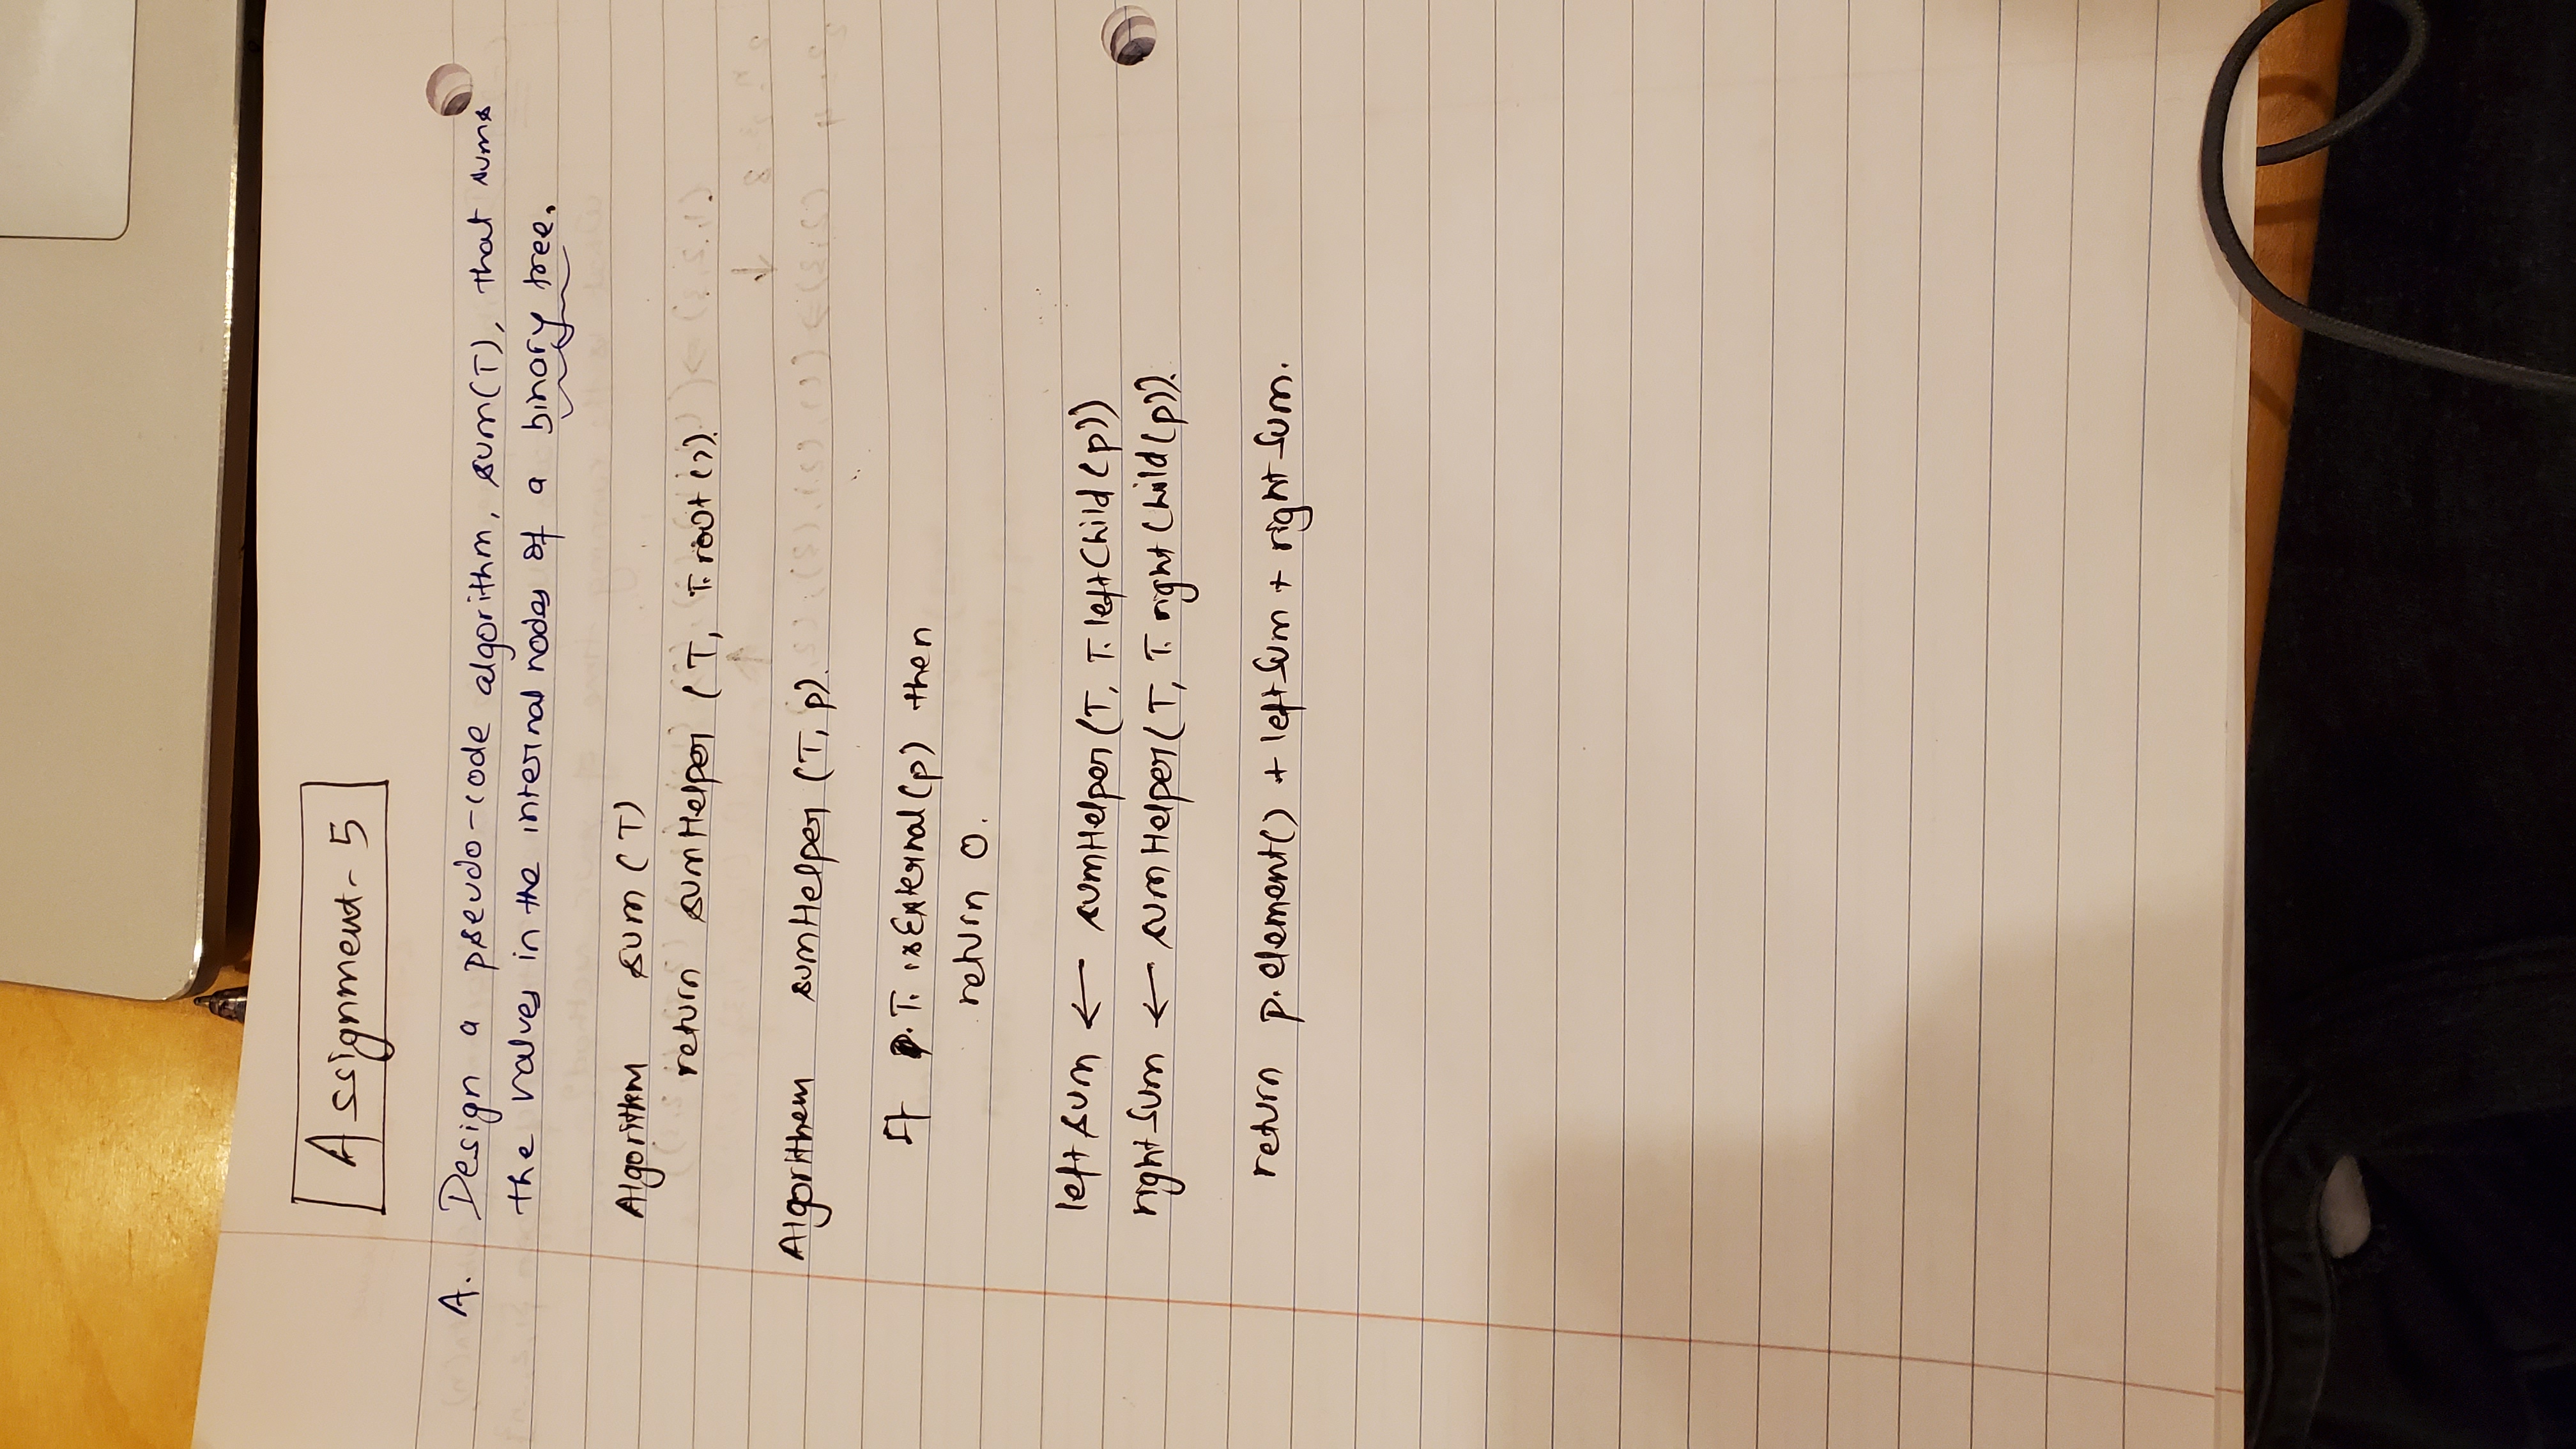 Assignment - 5
A. Design a pseudo-code algorithm, sum(T), that sums
the values in the internal nodes of a binary tree.
Algorithm sum (T)
return sumHelper (T, T.root()).
Algorithem sumHelper (T, p).
If T. isExternal(p) then
return 0.
left sum ← sumHelper (T, T. leftChild (p))
right Sum ← sumHelper (T, T. right Child (p)).
return p. element() + left Sum + right Sum.